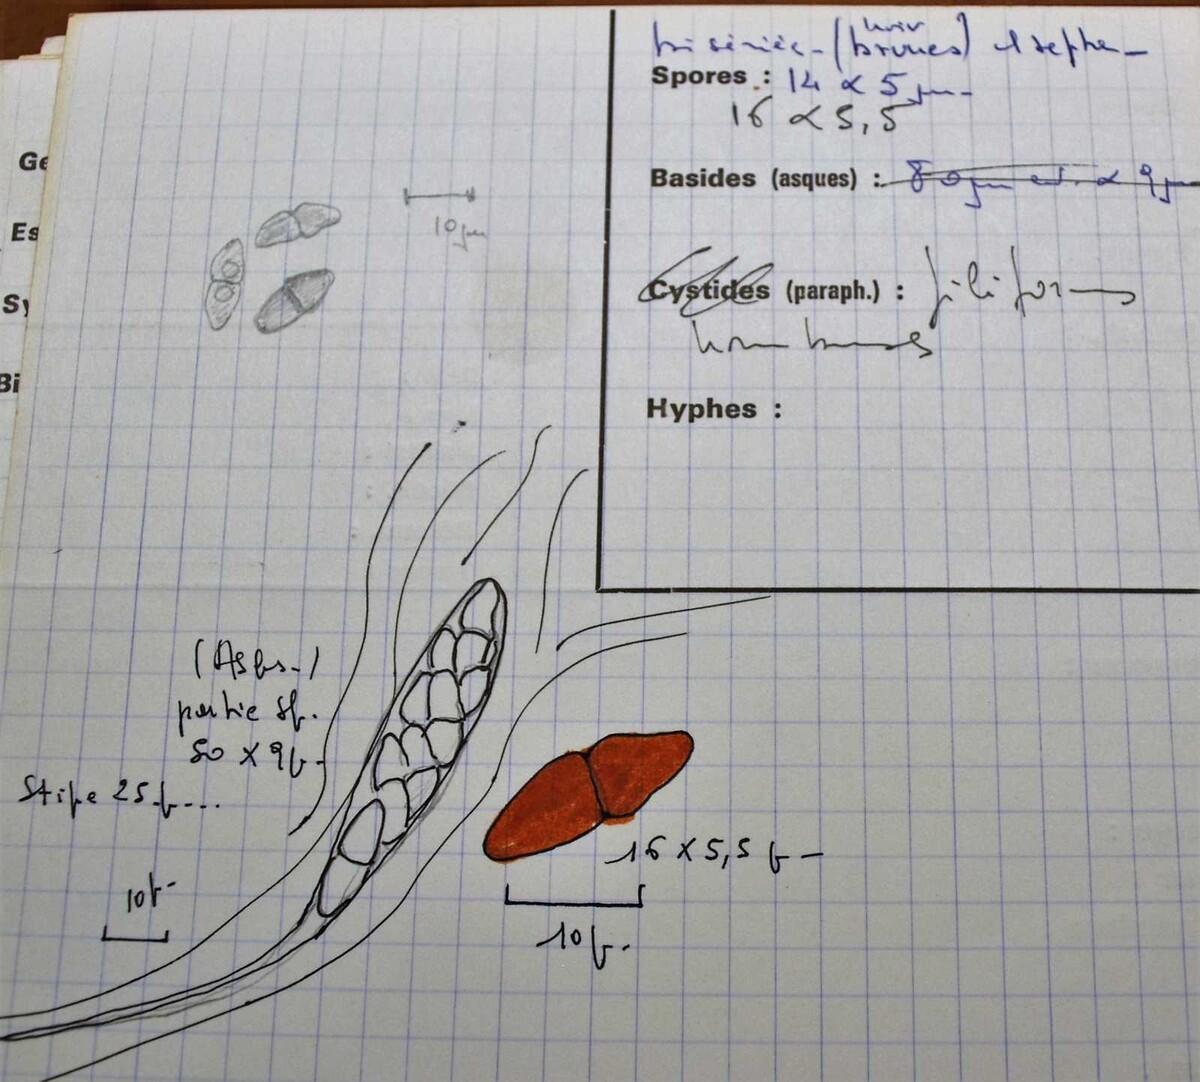 Ge
Es
Sy
Bi
bisériées - (brunes) 1 septée -
Spores : 14 x 5 µm -
16 x 5,5
Basides (asques) : 80µm x 9µm
Cystides (paraph.) : filiformes
nombreuses
Hyphes :
10µm
(Asques -)
partie sp.
80 x 9µ -
Stipe 25µ - ...
10µ -
16 x 5,5µ -
10µ -